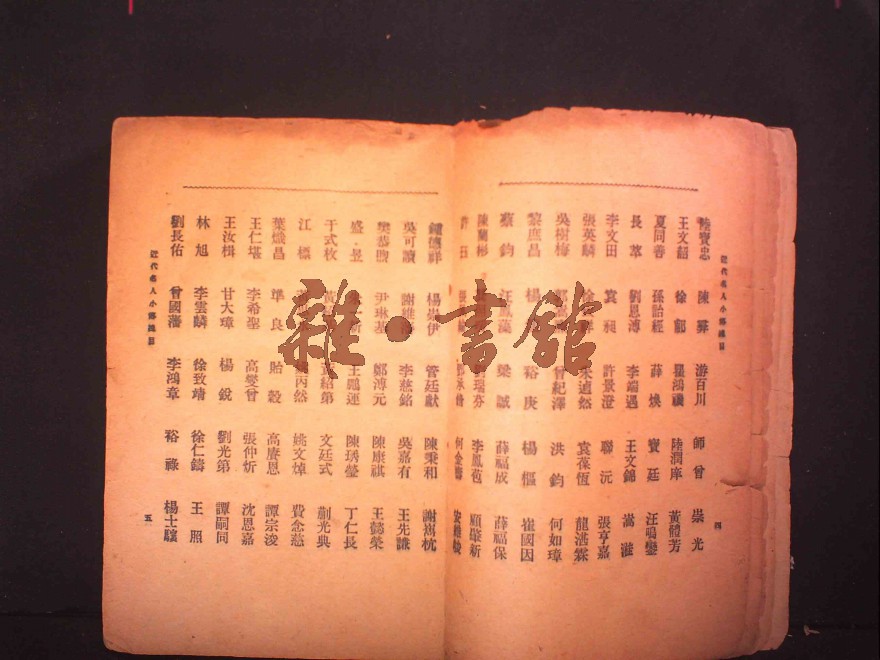 近代名人小傳總目
陸寶忠 陳彝 游百川 師曾 崇光
王文韶 徐郙 瞿鴻禨 陸潤庠 黃體芳
夏同善 孫詒經 薛煥 寶廷 汪鳴鑾
長萃 劉恩溥 李端遇 王文錦 嵩溎
李文田 袁昶 許景澄 聯元 張亨嘉
張英麟 袁葆恆 龍湛霖
吳樹梅 曾紀澤 洪鈞 何如璋
黎庶昌 楊 裕庚 楊樞 崔國因
蔡鈞 汪鳳藻 梁誠 薛福成 薛福保
陳蘭彬 劉瑞芬 李鳳苞 顧肇新
許珏
四
鍾德祥 楊崇伊 管廷獻 陳秉和 謝雋杭
吳可讀 謝維 李慈銘 吳嘉有 王先謙
樊恭煦 尹琳基 鄭溥元 陳康祺 王懿榮
盛昱 王鵬運 陳琇瑩 丁仁長
于式枚 黃紹第 文廷式 蒯光典
江標 丙然 姚文焯 費念慈
葉熾昌 準良 貽穀 高賡恩 譚宗浚
王仁堪 李希聖 高燮曾 張仲炘 沈恩嘉
王汝楫 甘大璋 楊銳 劉光第 譚嗣同
林旭 李雲麟 徐致靖 徐仁鑄 王照
劉長佑 曾國藩 李鴻章 裕祿 楊士驤
近代名人小傳總目
五
雜·書館